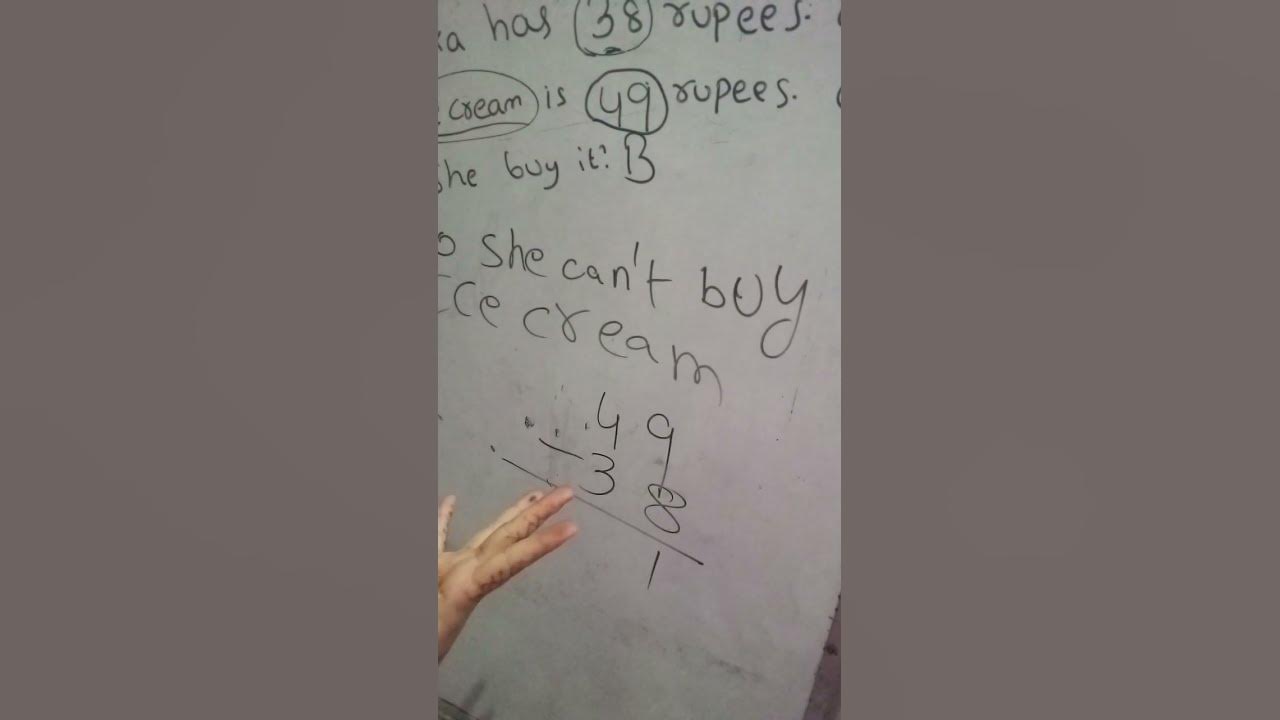 ka has 38 rupees.
cream is 49 rupees.
she buy it? B
o she can't buy
Ice cream
49
- 38
1